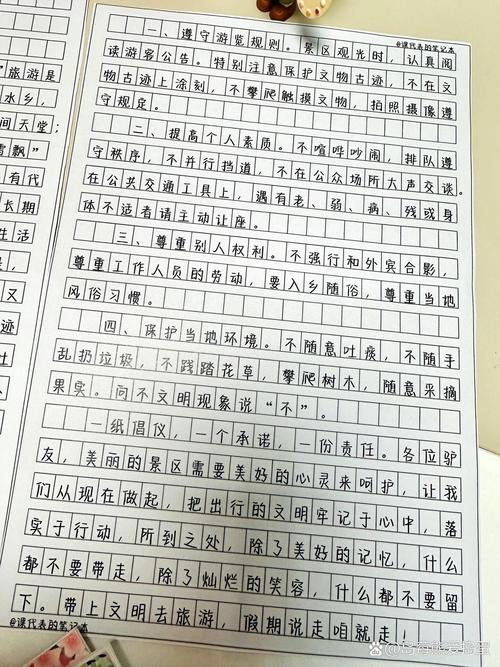 @课代表的笔记本
一、遵守游览规则。景区观光时，认真阅
读游客公告。特别注意保护文物古迹，不在文
物古迹上涂刻，不攀爬触摸文物，拍照摄像遵
守规定。
二、提高个人素质。不喧哗吵闹，排队遵
守秩序，不并行挡道，不在公众场所大声交谈。
在公共交通工具上，遇有老、弱、病、残或身
体不适者请主动让座。
三、尊重别人权利。不强行和外宾合影，
尊重工作人员的劳动，要入乡随俗，尊重当地
风俗习惯。
四、保护当地环境。不随意吐痰，不随手
乱扔垃圾，不践踏花草，攀爬树木，随意采摘
果实。向不文明现象说“不”。
一纸倡仪，一个承诺，一份责任。各位驴
友，美丽的景区需要美好的心灵来呵护，让我
们从现在做起，把出行的文明牢记于心中，落
实于行动，所到之处，除了美好的记忆，什么
都不要带走，除了灿烂的笑容，什么都不要留
下。带上文明去旅游，假期说走咱就走！
@课代表的笔记本
旅游是
水乡，
间天堂；
雪飘”
有代
长期
生活
，
又
迹